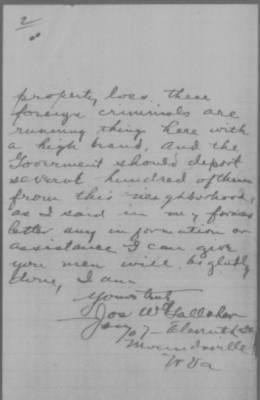 2
property loss. these
foreign criminals are
running thing here with
a high hand, and the
Goverment should deport
several hundred of them
from this neighborhood,
as I said in my former
letter any information or
assistance I can give
you men will be gladly
done, I am
Yours truly
Jos W Gallaher
707
Moundsville
W Va